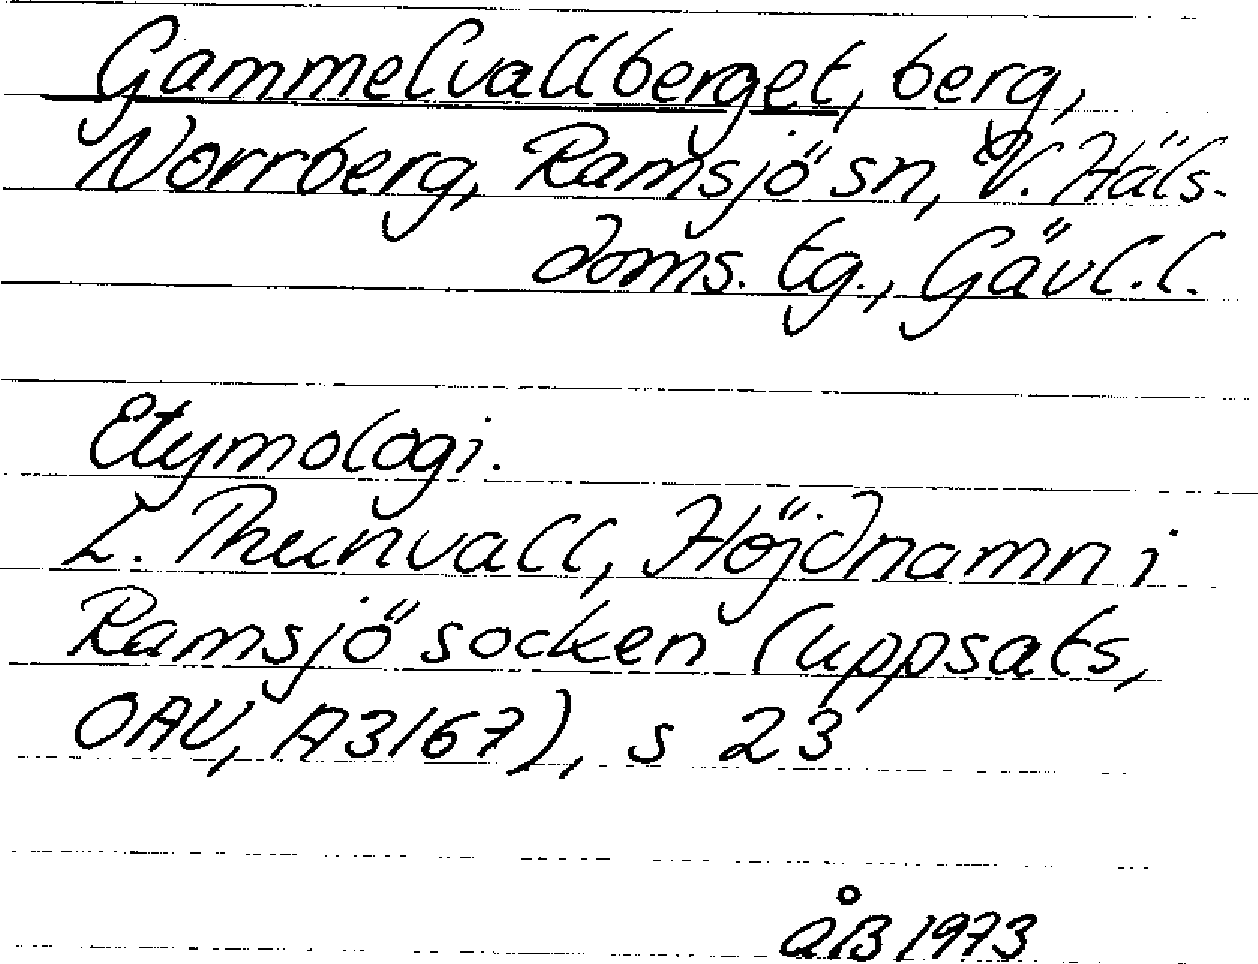 Gammelvallberget, berg,
Norrberg, Ramsjö sn, V. Häls.
doms. tg., Gävl.l.
Etymologi.
L. Thunvall, Höjdnamn i
Ramsjö socken (uppsats,
OAU, A3167), s 23
ÅB 1973